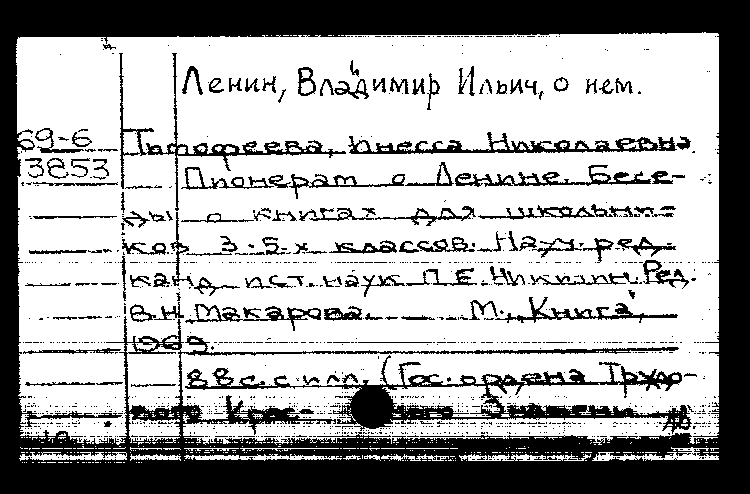 Ленин, Владимир Ильич, о нем.
69-6 Тимофеева, Инесса Николаевна
13853 Пионерам о Ленине. Бесе-
ды о книгах для школьни-
ков 3-5-х классов. Науч. ред.
канд. ист. наук П.Е. Никитин. Ред.
В.Н. Макарова. М., „Книга",
1969.
88 с. с илл. (Гос. ордена Трудо-
вого Крас- ного Знамени